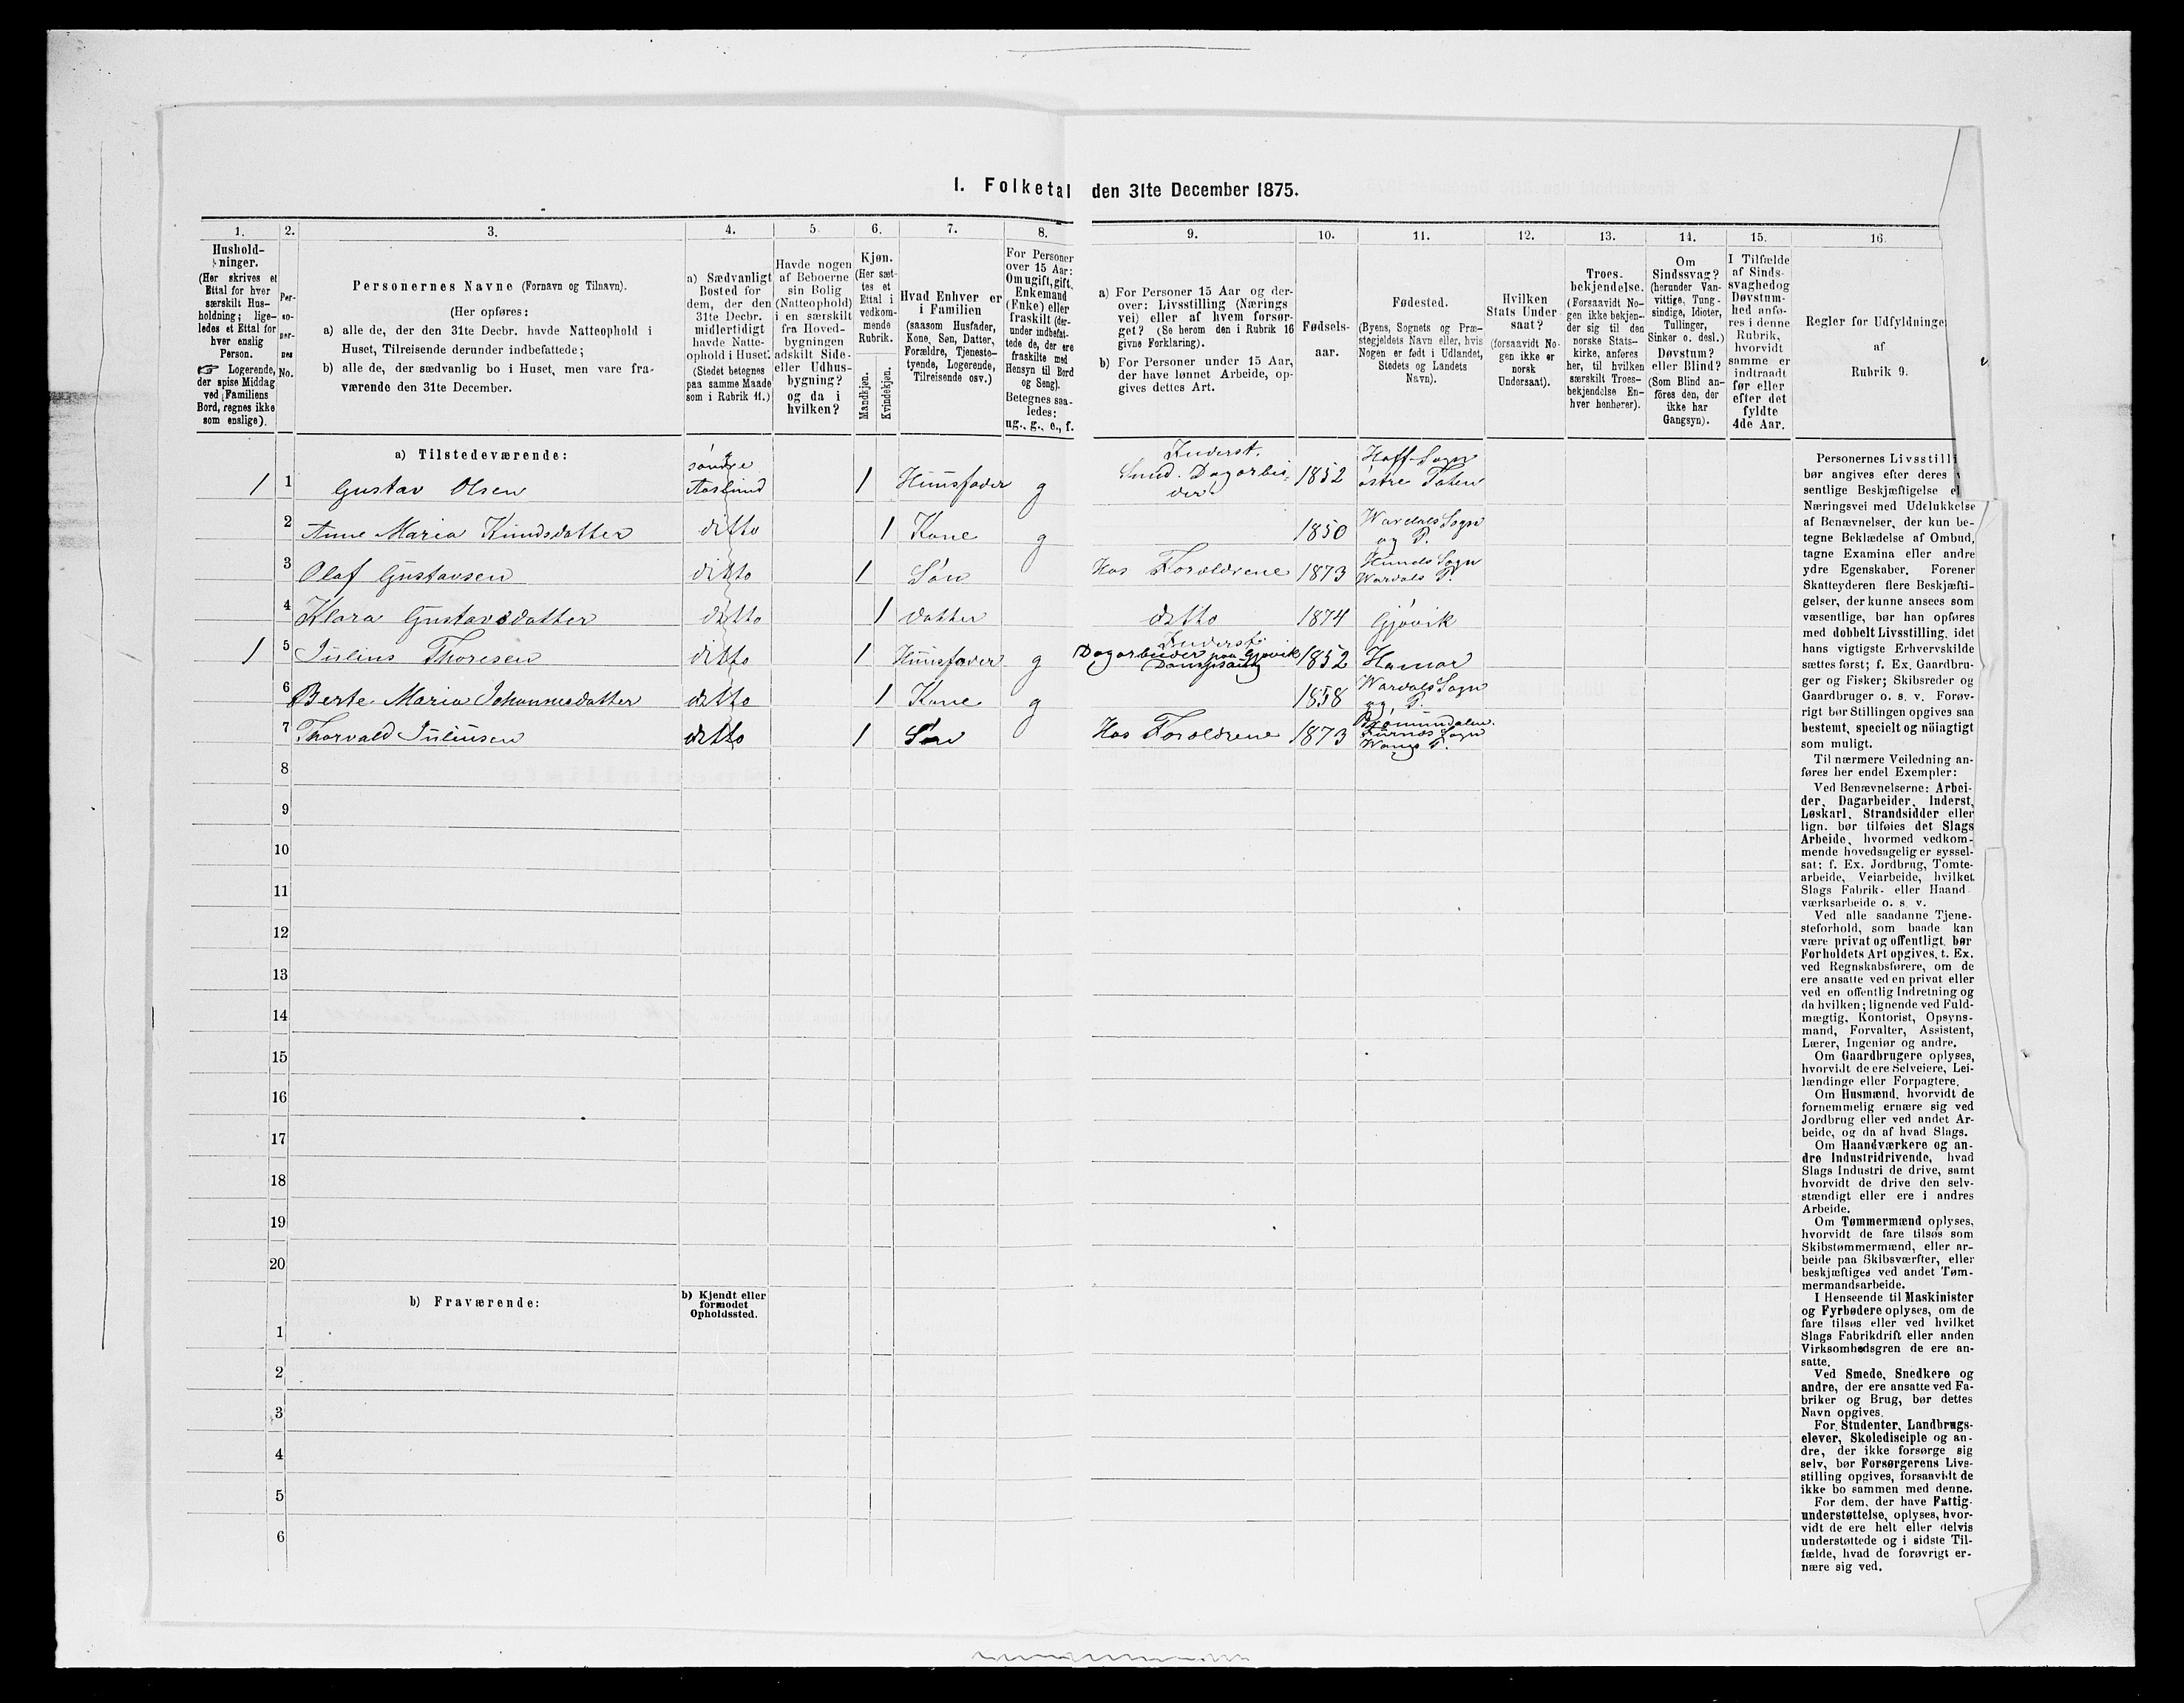 I. Folketal den 31te December 1875.
1.
Hushold-
ninger.
(Her skrives et
Ettal for hver
særskilt Hus-
holdning; lige-
ledes et Ettal for
hver enslig
Person.
☞ Logerende,
der spise Middag
ved Familiens
Bord, regnes ikke
som enslige).
2.
Per-
so-
ner-
nes
No.
3.
Personernes Navne (Fornavn og Tilnavn).
(Her opføres:
a) alle de, der den 31te Decbr. havde Natteophold i
Huset, Tilreisende derunder indbefattede;
b) alle de, der sædvanlig bo i Huset, men vare fra-
værende den 31te December.
4.
a) Sædvanligt
Bosted for
dem, der den
31te Decbr.
midlertidigt
havde Natte-
ophold i Huset.
(Stedet betegnes
paa samme Maade
som i Rubrik 11.)
5.
Havde nogen
af Beboerne
sin Bolig
(Natteophold)
i en særskilt
fra Hoved-
bygningen
adskilt Side-
eller Udhus-
bygning?
og da i
hvilken?
6.
Kjøn.
(Her sæt-
tes et
Ettal i
vedkom-
mende
Rubrik.
Mandkjøn.
Kvindekjøn.
7.
Hvad Enhver er
i Familien
(saasom Husfader,
Kone, Søn, Datter,
Forældre, Tjeneste-
tyende, Logerende,
Tilreisende osv.)
8.
For Personer
over 15 Aar:
Om ugift, gift,
Enkemand
(Enke) eller
fraskilt (der-
under indbefat-
tede de, der ere
fraskilte med
Hensyn til Bord
og Seng).
Betegnes saa-
ledes:
ug., g., e., f.
9.
a) For Personer 15 Aar og der-
over: Livsstilling (Nærings
vei) eller af hvem forsør-
get? (Se herom den i Rubrik 16
givne Forklaring).
b) For Personer under 15 Aar,
der have lønnet Arbeide, op-
gives dettes Art.
10.
Fødsels-
aar.
11.
Fødested.
(Byens, Sognets og Præ-
stegjeldets Navn eller, hvis
Nogen er født i Udlandet,
Stedets og Landets
Navn).
12.
Hvilken
Stats Under
saat?
(forsaavidt No-
gen ikke er
norsk
Undersaat).
13.
Troes-
bekjendelse.
(Forsaavidt No-
gen ikke bekjen-
der sig til den
norske Stats-
kirke, anføres
her, til hvilken
særskilt Troes-
bekjendelse En-
hver henhører).
14.
Om
Sindssvag?
(herunder Van-
vittige, Tung-
sindige, Idioter,
Tullinger,
Sinker o. desl.)
Døvstum?
eller Blind?
(Som Blind an-
føres den, der
ikke har
Gangsyn).
15.
I Tilfælde
af Sinds-
svaghed og
Døvstum-
hed anfø-
res i denne
Rubrik,
hvorvidt
samme er
indtraadt
før eller
efter det
fyldte
4de Aar.
16.
Regler for Udfyldninge
af
Rubrik 9.
a) Tilstedeværende:
1 1 Gustav Olsen søndre Aaslund 1 Huusfader g Inderst. Smed. Dagarbei- der 1852 Hoff Sogn østre Toten
2 Anne Maria Knudsdatter ditto 1 Kone g 1850 Wardals Sogn og P.
3 Olaf Gustavsen ditto 1 Søn Hos Forældrene 1873 Hunds Sogn Wardals P.
4 Klara Gustavsdatter ditto 1 datter ditto 1874 Gjøvik
1 5 Julius Thoresen ditto 1 Huusfader g Inderst. Dagarbeider paa Gjøvik Dampsaug 1852 Hamar
6 Berte Maria Johannesdatter ditto 1 Kone g 1858 Wardals Sogn og P.
7 Thorvald Juliusen ditto 1 Søn Hos Forældrene 1873 Brumunddalen Furnæs Sogn Wangs P.
8
9
10
11
12
13
14
15
16
17
18
19
20
b) Fraværende:
b) Kjendt eller
formodet
Opholdssted.
1
2
3
4
5
6
Personernes Livsstilli
bør angives efter deres
sentlige Beskjæftigelse el
Næringsvei med Udelukkelse
af Benævnelser, der kun be-
tegne Beklædelse af Ombud,
tagne Examina eller andre
ydre Egenskaber. Forener
Skatteyderen flere Beskjæfti-
gelser, der kunne ansees som
væsentlige, bør han opføres
med dobbelt Livsstilling, idet
hans vigtigste Erhvervskilde
sættes først; f. Ex. Gaardbru-
ger og Fisker; Skibsreder og
Gaardbruger o. s. v. Forøv-
rigt bør Stillingen opgives saa
bestemt, specielt og nøiagtigt
som muligt.
Til nærmere Veiledning an-
føres her endel Exempler:
Ved Benævnelserne: Arbei-
der, Dagarbeider, Inderst,
Løskarl, Strandsidder eller
lign. bør tilføies det Slags
Arbeide, hvormed vedkom-
mende hovedsagelig er syssel-
sat; f. Ex. Jordbrug, Tomte-
arbeide, Veiarbeide, hvilket
Slags Fabrik- eller Haand-
værksarbeide o. s. v.
Ved alle saadanne Tjene-
steforhold, som baade kan
være privat og offentligt, bør
Forholdets Art opgives, t. Ex.
ved Regnskabsførere, om de
ere ansatte ved en privat eller
ved en offentlig Indretning og
da hvilken; lignende ved Fuld-
mægtig, Kontorist, Opsyns-
mand, Forvalter, Assistent,
Lærer, Ingeniør og andre.
Om Gaardbrugere oplyses,
hvorvidt de ere Selveiere, Lei-
lændinge eller Forpagtere.
Om Husmænd, hvorvidt de
fornemmelig ernære sig ved
Jordbrug eller ved andet Ar-
beide, og da af hvad Slags.
Om Haandværkere og an-
dre Industridrivende, hvad
Slags Industri de drive, samt
hvorvidt de drive den selv-
stændigt eller ere i andres
Arbeide.
Om Tømmermænd oplyses,
hvorvidt de fare tilsøs som
Skibstømmermænd, eller ar-
beide paa Skibsværfter, eller
beskjæftiges ved andet Tøm-
mermandsarbeide.
I Henseende til Maskinister
og Fyrbødere oplyses, om de
fare tilsøs eller ved hvilket
Slags Fabrikdrift eller anden
Virksomhedsgren de ere an-
satte.
Ved Smede, Snedkere og
andre, der ere ansatte ved Fa-
briker og Brug, bør dettes
Navn opgives.
For Studenter, Landbrugs-
elever, Skoledisciple og an-
dre, der ikke forsørge sig
selv, bør Forsørgerens Livs-
stilling opgives, forsaavidt de
ikke bo sammen med denne.
For dem, der have Fattig-
understøttelse, oplyses, hvor-
vidt de ere helt eller delvis
understøttede og i sidste Til-
fælde, hvad de forøvrigt er-
nære sig ved.